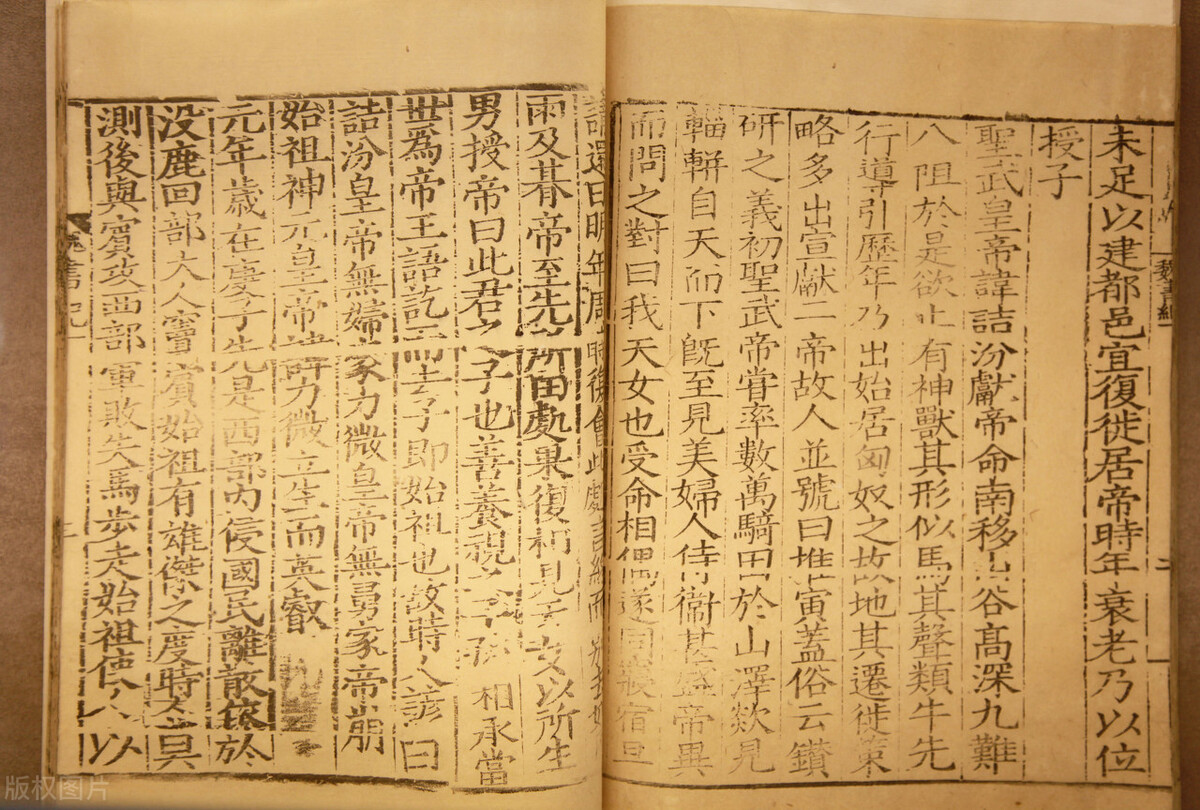 未足以建都邑宜復徙居帝時年衰老乃以位
授子
聖武皇帝諱詰汾獻帝命南移山谷高深九難
八阻於是欲止有神獸其形似馬其聲類牛先
行導引歷年乃出始居匈奴之故地其遷徙策
略多出宣獻二帝故人並號曰推寅蓋俗云鑽
研之義初聖武帝甞率數萬騎田於山澤欻見
輜軿自天而下旣至見美婦人侍衞甚盛帝異
而問之對曰我天女也受命相偶遂同寢宿旦
請還曰明年周時復會此處言終而別去如
雨及朞帝至先所田處果復相見天女以所生
男授帝曰此君之子也善養視之子孫相承當
世爲帝王語訖而去子即始祖也故時人諺曰
詰汾皇帝無婦家力微皇帝無舅家帝崩
始祖神元皇帝諱力微立生而英叡
元年歲在庚子先是西部內侵國民離散依於
没鹿回部大人竇賓始祖有雄傑之度時人莫
測後與賓攻西部軍敗失馬步走始祖使人以
魏書紀一
版权图片